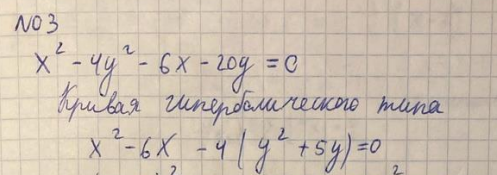 №3
x² - 4y² - 6x - 20y = 0
Кривая гиперболического типа
x² - 6x - 4(y² + 5y) = 0